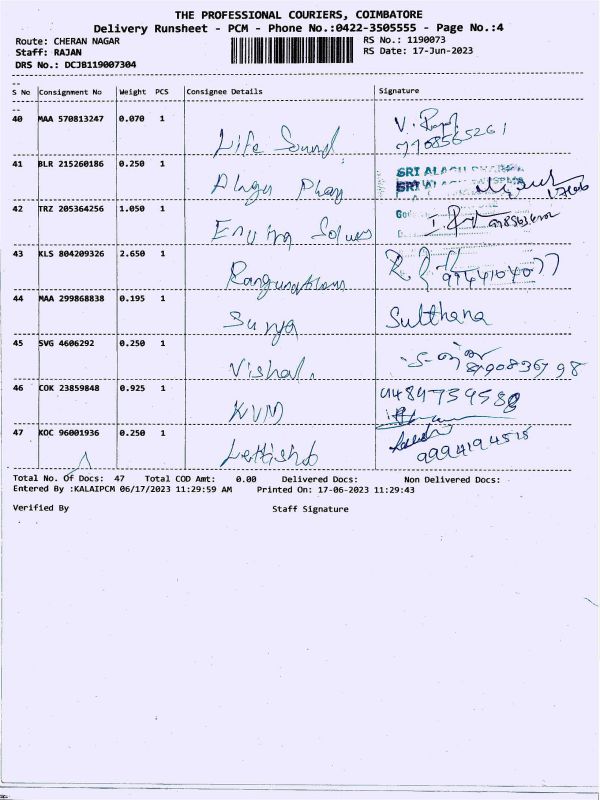 THE PROFESSIONAL COURIERS, COIMBATORE
Delivery Runsheet - PCM - Phone No.:0422-3505555 - Page No.:4
Route: CHERAN NAGAR RS No.: 1190073
Staff: RAJAN RS Date: 17-Jun-2023
DRS No.: DCJB119007304
S No Consignment No Weight PCS Consignee Details Signature
40 MAA 570813247 0.070 1 Life Sound
41 BLR 215260186 0.250 1 SRI
42 TRZ 205364256 1.050 1
43 KLS 804209326 2.650 1
44 MAA 299868838 0.195 1 Surya Sulthana
45 SVG 4606292 0.250 1 Vishal.
46 COK 23859848 0.925 1 KVM
47 KOC 96001936 0.250 1
Total No. Of Docs: 47 Total COD Amt: 0.00 Delivered Docs: Non Delivered Docs:
Entered By :KALAIPCM 06/17/2023 11:29:59 AM Printed On: 17-06-2023 11:29:43
Verified By Staff Signature